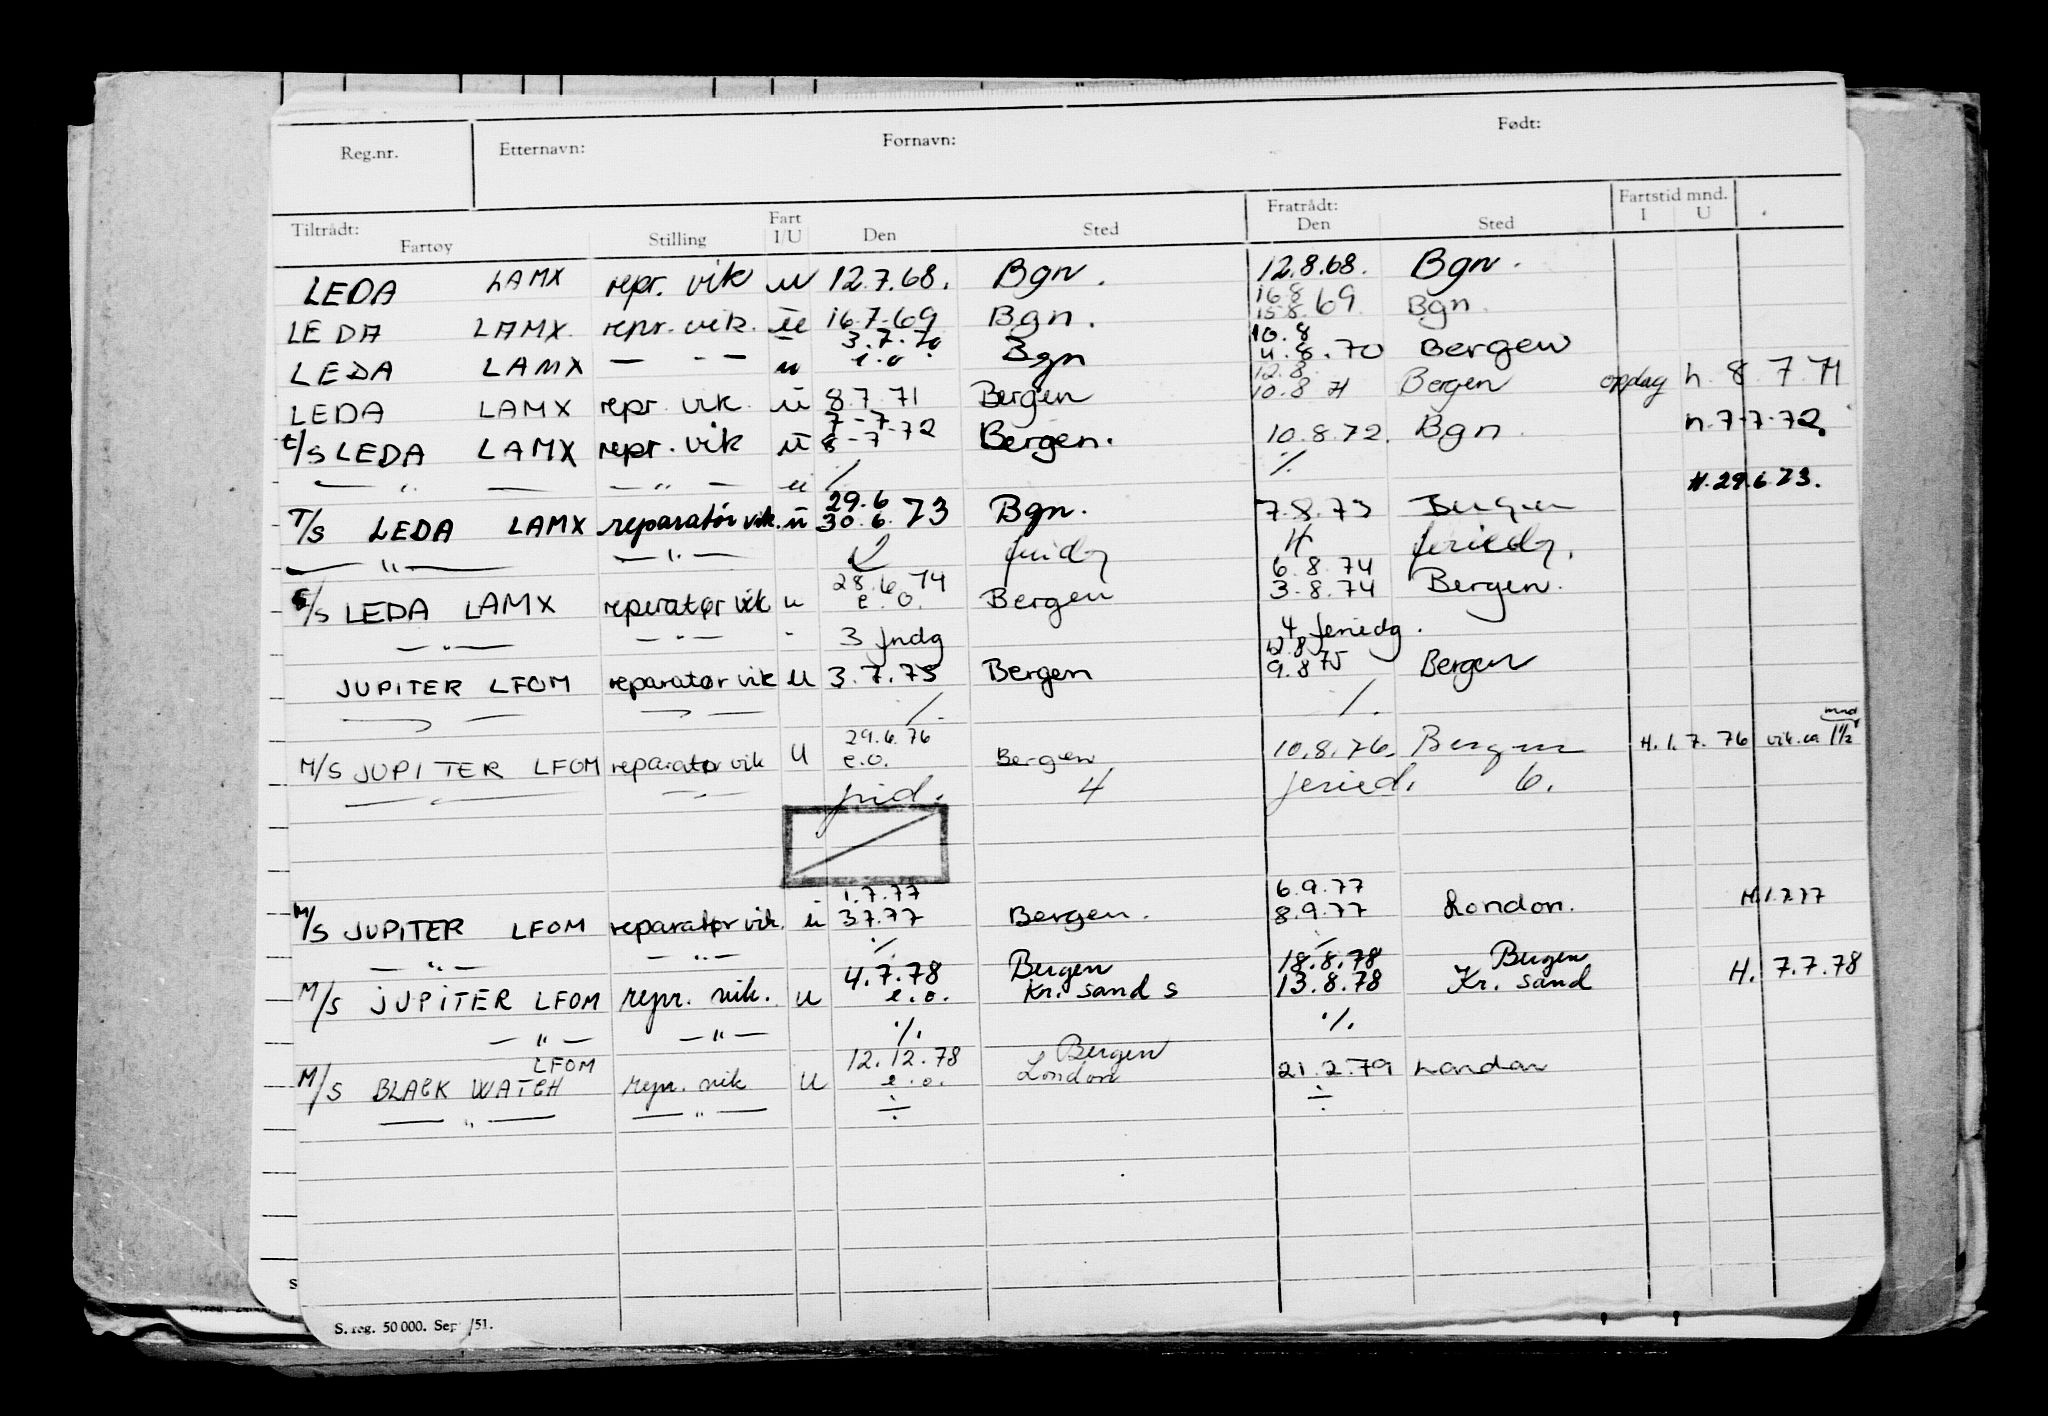 Reg.nr. Etternavn: Fornavn: Født:
Tiltrådt: Fartøy Stilling Fart I/U Den Sted Fratrådt: Den Sted Fartstid mnd. I U
LEDA LAMX repr. vik u 12.7.68. Bgn. 12.8.68. Bgn.
LEDA LAMX. repr. vik. u 16.7.69 Bgn. 16.8 15.8.69. Bgn.
LEDA LAMX — " — u 3.7.70 e.o. Bgn 10.8 11.8.70 Bergen
LEDA LAMX repr. vik. u 8.7.71 Bergen 12.8. 10.8 71 Bergen oppdag h. 8.7.71
t/s LEDA LAMX repr. vik u 7-7- 8-7-72 Bergen. 10.8.72. Bgn. h.7-7-72.
— " — — — " — u ٪ ٪
T/S LEDA LAMX reparatør vik. u 29.6 30.6.73 Bgn. 7.8.73 Bergen H.29.6.73.
— " — — " — feriedg.
T/S LEDA LAMX reparatør vik u 28.6.74 e.o. Bergen 6.8.74 3.8.74 Bergen.
— " — — " — 3 4 feriedg.
JUPITER LFOM reparatør vik u 3.7.75 Bergen 12.8 9.8 75 Bergen
M/S JUPITER LFOM reparatør vik U 29.6.76 e.o. Bergen 10.8.76. Bergen H.1.7.76 vik. ca 1½ mnd
— " — — " — 4 feried. 6.
M/S JUPITER LFOM reparatør vik. u 1.7.77 3.7.77 Bergen. 6.9.77 8.9.77 London. H.1.7.77
— " — — " — ٪
M/S JUPITER LFOM repr. vik. u 4.7.78 e.o. Bergen Kr. sand s 18.8.78 13.8.78 Bergen Kr. sand H. 7.7.78
— " — — " — ٪ ٪
M/S BLACK WATCH LFOM repr. vik U 12.12.78 e.o. Bergen London 21.2.79 London
— " — — " — ÷ ÷
S. reg. 50 000. Sep /51.